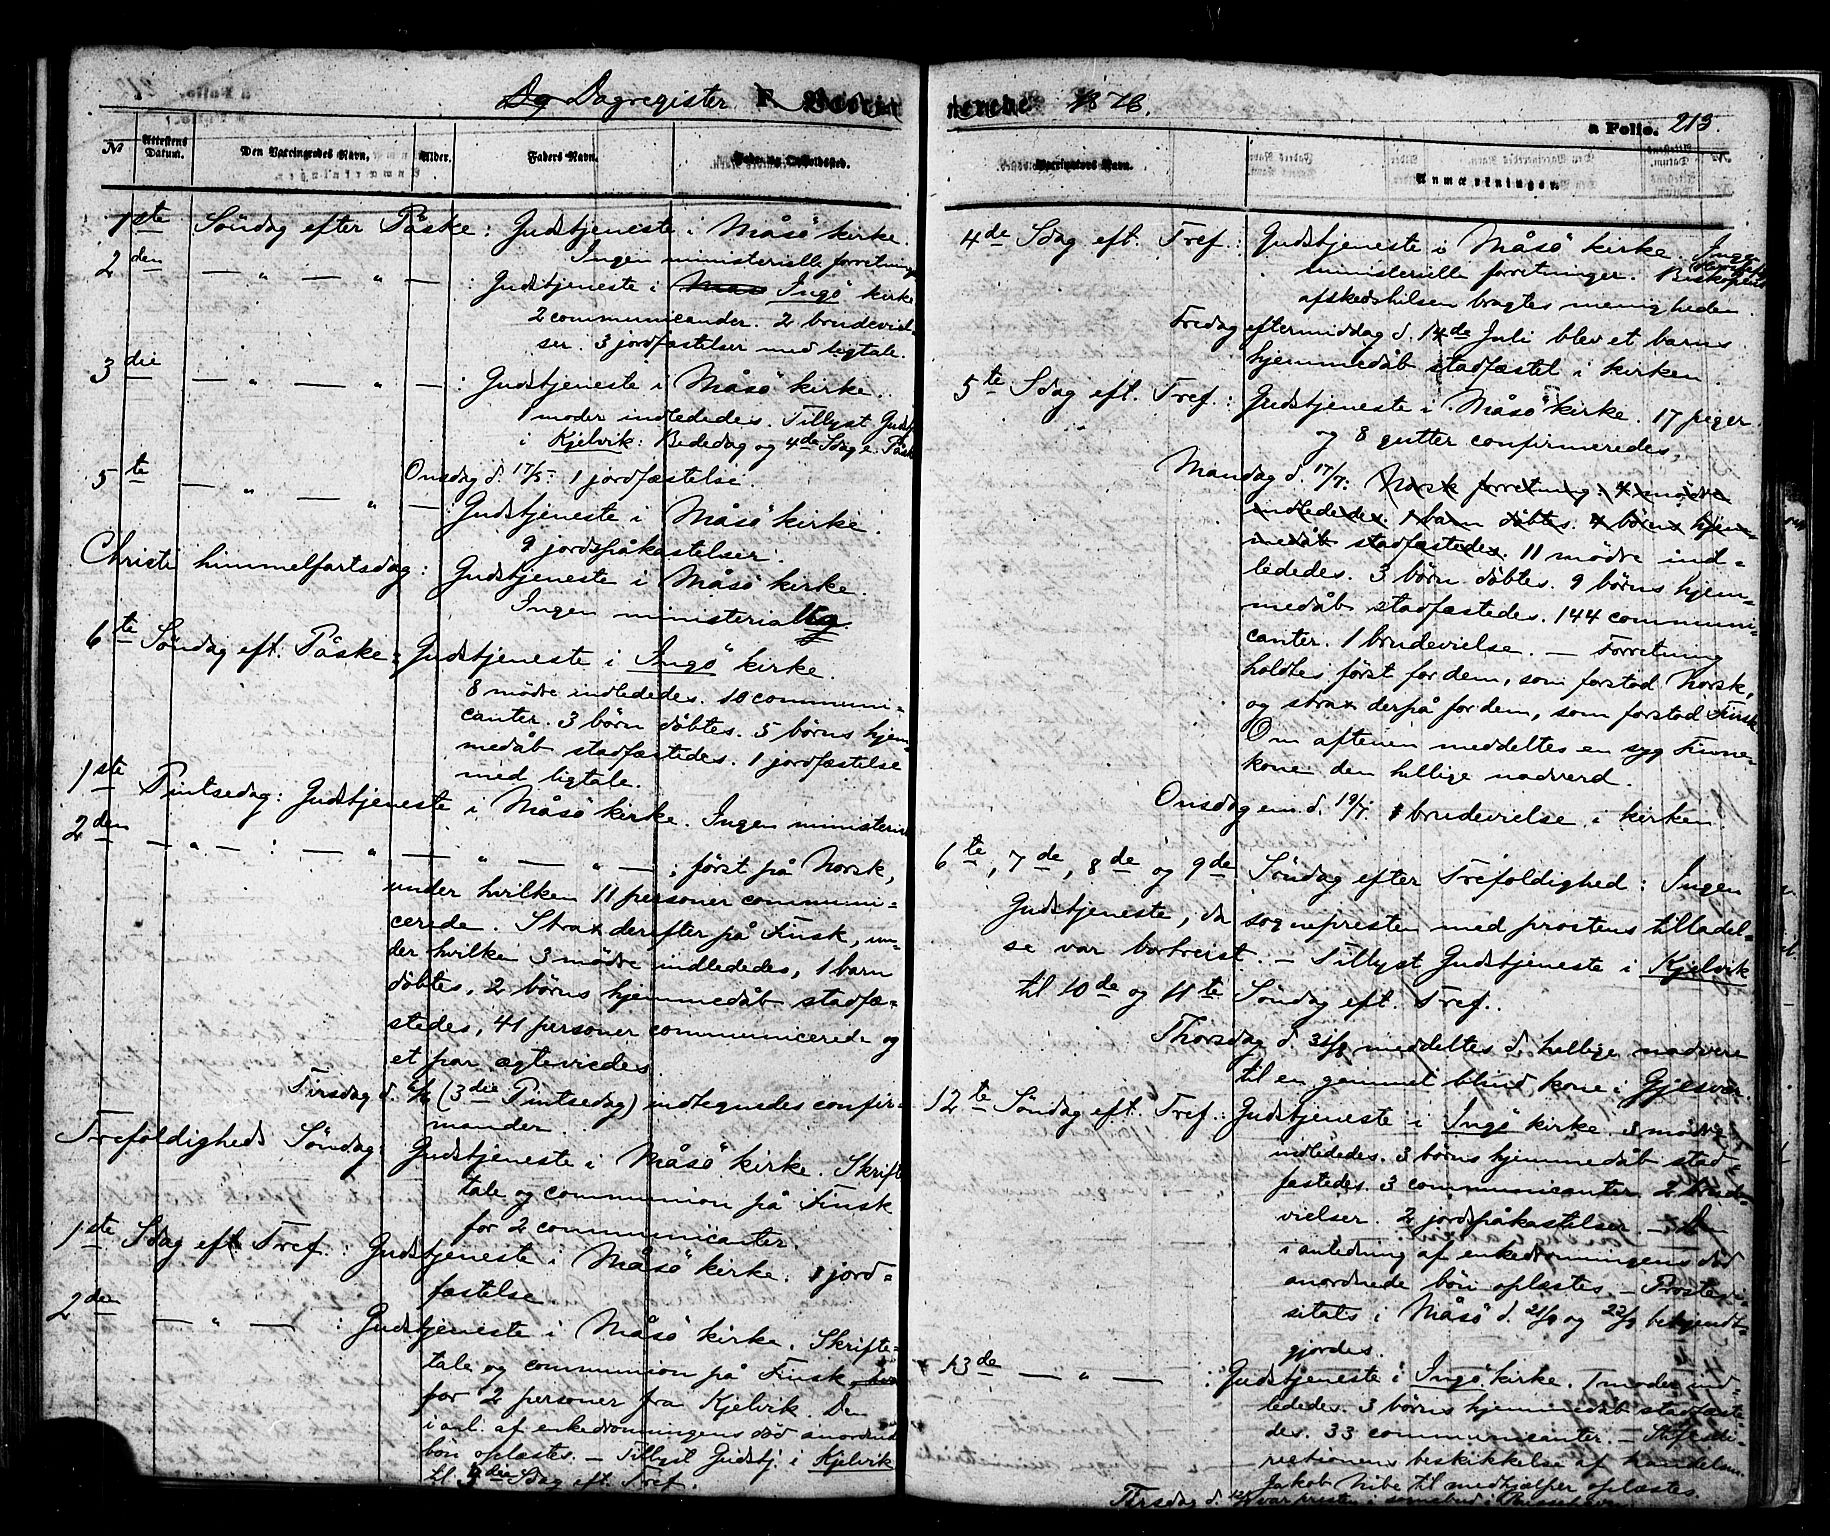 Dagregister F. 1876. a Folio. 213.
No Attestens Datum. Den Vaccineredes Navn, Alder. Faders Navn.
Vaccinators Navn. Anmærkninger.
1ste Söndag efter Påske: Gudstjeneste i Måsö kirke.
Ingen ministerielle forretninger
2den — " — " — : Gudstjeneste i Ingö kirke
2 communicander. 2 brudeviel-
ser. 3 jordfæstelser med ligtale.
3die — " — " — : Gudstjeneste i Måsö kirke.
1 moder indlededes. Tillyst Gudstj
i Kjelvik: Bededag og 4de Sdag e. Påske
Onsdag d. 17/5: 1 jordfæstelse.
5te — " — " — : Gudstjeneste i Måsö kirke.
9 jordspåkastelser.
Christi himmelfartsdag: Gudstjeneste i Måsö kirke.
Ingen ministerialia.
6te Söndag eft. Påske: Gudstjeneste i Ingö kirke.
8 mödre indlededes. 10 communi-
canter. 3 börn döbtes. 5 börns hjem-
medåb stadfæstedes. 1 jordfæstelse
med ligtale.
1ste Pintsedag: Gudstjeneste i Måsö kirke. Ingen ministeria
2den — " — : — " — " — " — ; först på Norsk,
under hvilken 11 personer communi-
cerede. Strax derefter på Finsk, un-
der hvilken 3 mödre indlededes, 1 barn
döbtes, 2 börns hjemmedåb stadfæ-
stedes, 41 personer communicerede og
et par ægteviedes.
Tirsdag d. 6/6 (3die Pintsedag) indtegnedes confir-
mander.
Trefoldigheds Söndag: Gudstjeneste i Måsö kirke. Skrifte-
tale og communion på Finsk
for 2 communicanter.
1ste Sdag eft Tref.: Gudstjeneste i Måsö kirke. 1 jord-
fæstelse.
2den — " — : Gudstjeneste i Måsö kirke. Skrifte-
tale og communion på Finsk
for 2 personer fra Kjelvik. Den
i anl. af enkedronningens död anordnede
bön oplæstes. — Tillyst Gudstj. i Kjelvik
til 3die Sdag eft. Tref.
4de Sdag eft. Tref.: Gudstjeneste i Måsö kirke. Ingen
ministerielle forretninger. Biskopens
afskedshilsen bragtes menigheden.
Fredag eftermiddag d. 14de Juli blev et barns
hjemmedåb stadfæstet i kirken.
5te Sdag eft. Tref.: Gudstjeneste i Måsö kirke. 17 piger
og 8 gutter confirmeredes.
Mandag d. 17/7: Norsk forretning: 4 mödre
indlededes. 1 barn döbtes. 4 börns hjem-
medåb stadfæstedes. 11 mödre ind-
lededes. 3 börn döbtes. 9 börns hjem-
medåb stadfæstedes. 144 communi-
canter. 1 brudevielse. — Forretning
holdtes först for dem, som forstod Norsk,
og strax derpå for dem, som forstod Finsk
Om aftenen meddeltes en syg Finne-
kone den hellige nadverd.
Onsdag em. d. 19/7: 1 brudevielse i kirken.
6te, 7de, 8de og 9de Söndag efter Trefoldighed: Ingen
Gudstjeneste, da sognepresten med prostens tilladel-
se var bortreist. — Tillyst Gudstjeneste i Kjelvik
til 10de og 11te Söndag eft. Tref.
Thorsdag d. 31/8 meddeltes d. hellige nadvere
til en gammel blind kone i Gjesvær.
12te Söndag eft. Tref.: Gudstjeneste i Ingö kirke. 3 mödre
indlededes. 3 börns hjemmedåb stad-
fæstedes. 3 communicanter. 2 brude-
vielser. 2 jordspåkastelser. — Den
i anledning af enkedronningens död
anordnede bön oplæstes. — Prostevi-
sitats i Måsö d. 21/9 og 22/9 bekjendt-
gjordes.
13de — " — : Gudstjeneste i Ingö kirke. 1 moder ind-
lededes. 3 börns hjemmedåb stadfæste-
des. 33 communicanter. — Stiftsdi-
rectionens beskikkelse af handelsm.
Jakob Nibe til medhjælper oplæstes.
Tirsdag d. 12/9 var presten i sognebud i